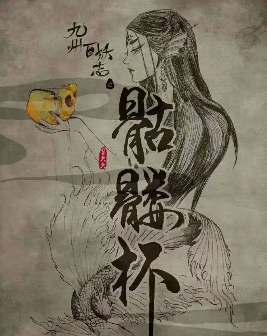 九州
百妖志之
骷髅杯